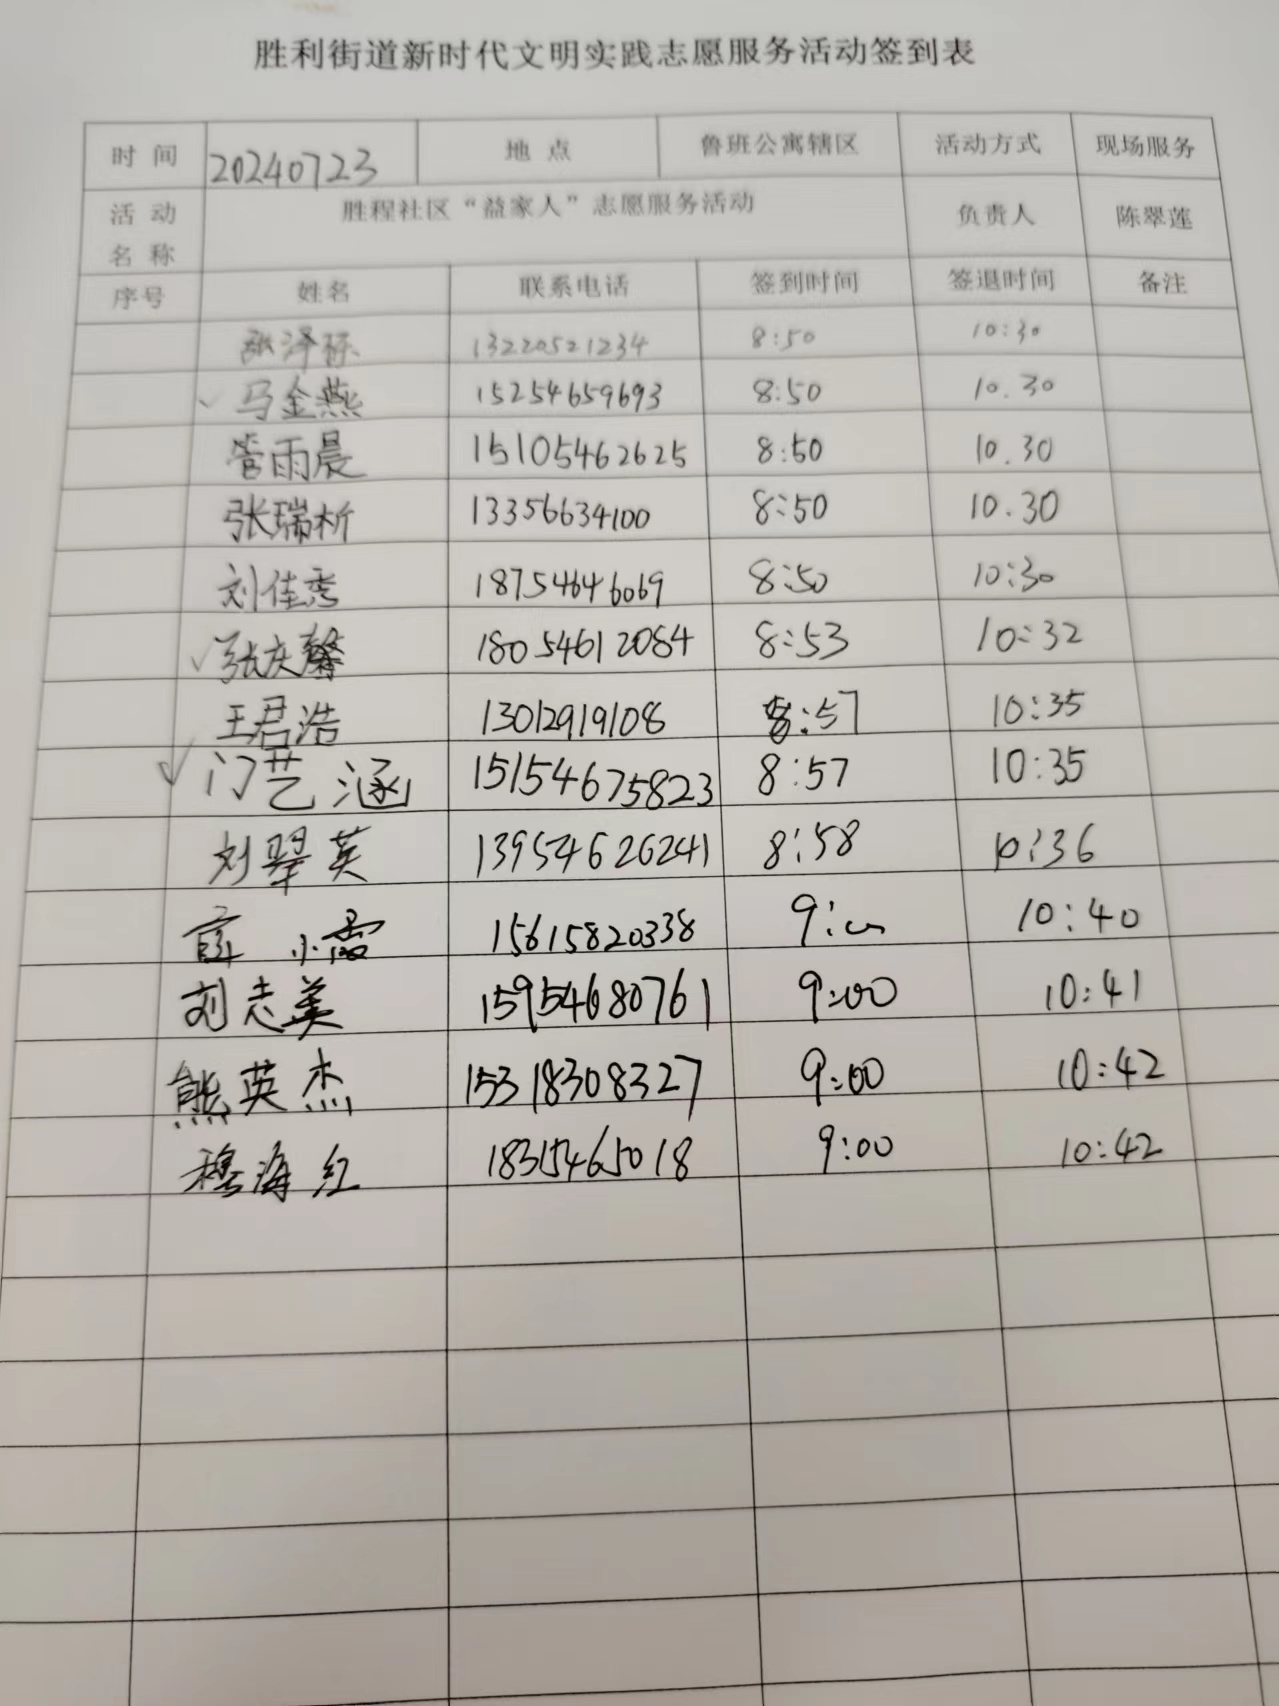 胜利街道新时代文明实践志愿服务活动签到表
时间 20240723 地点 鲁班公寓辖区 活动方式 现场服务
活动名称 胜程社区“益家人”志愿服务活动 负责人 陈翠莲
序号 姓名 联系电话 签到时间 签退时间 备注
张泽 13220521234 8:50 10:30
✓ 马金燕 15254659693 8:50 10.30
管雨晨 15105462625 8:50 10.30
张瑞析 13356634100 8:50 10.30
刘佳秀 18754646069 8:50 10:30
✓ 张庆馨 18054612084 8:53 10:32
王君浩 13012919108 8:57 10:35
✓ 门艺涵 15154675823 8:57 10:35
刘翠英 13954626241 8:58 10:36
薛小霞 15615820338 9:00 10:40
刘志美 15954680761 9:00 10:41
熊英杰 15318308327 9:00 10:42
穆海红 18315465018 9:00 10:42